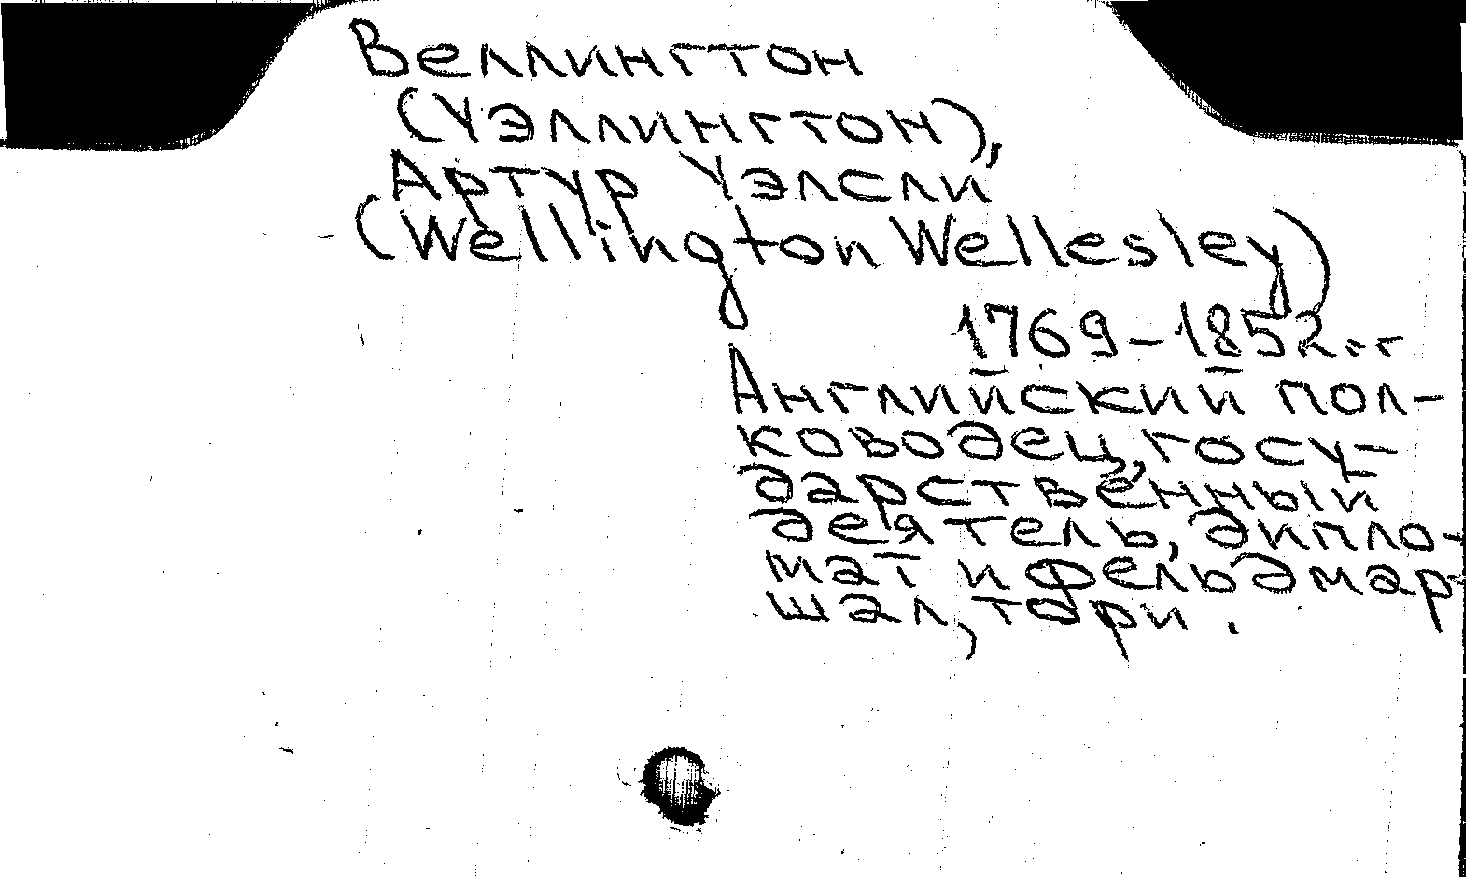 Веллингтон
(Уэллингтон),
Артур Уэлсли
(Wellington Wellesley)
1769-1852 гг
Английский пол-
ководец, госу-
дарственный
деятель, дипло-
мат и фельдмар-
шал, тори.